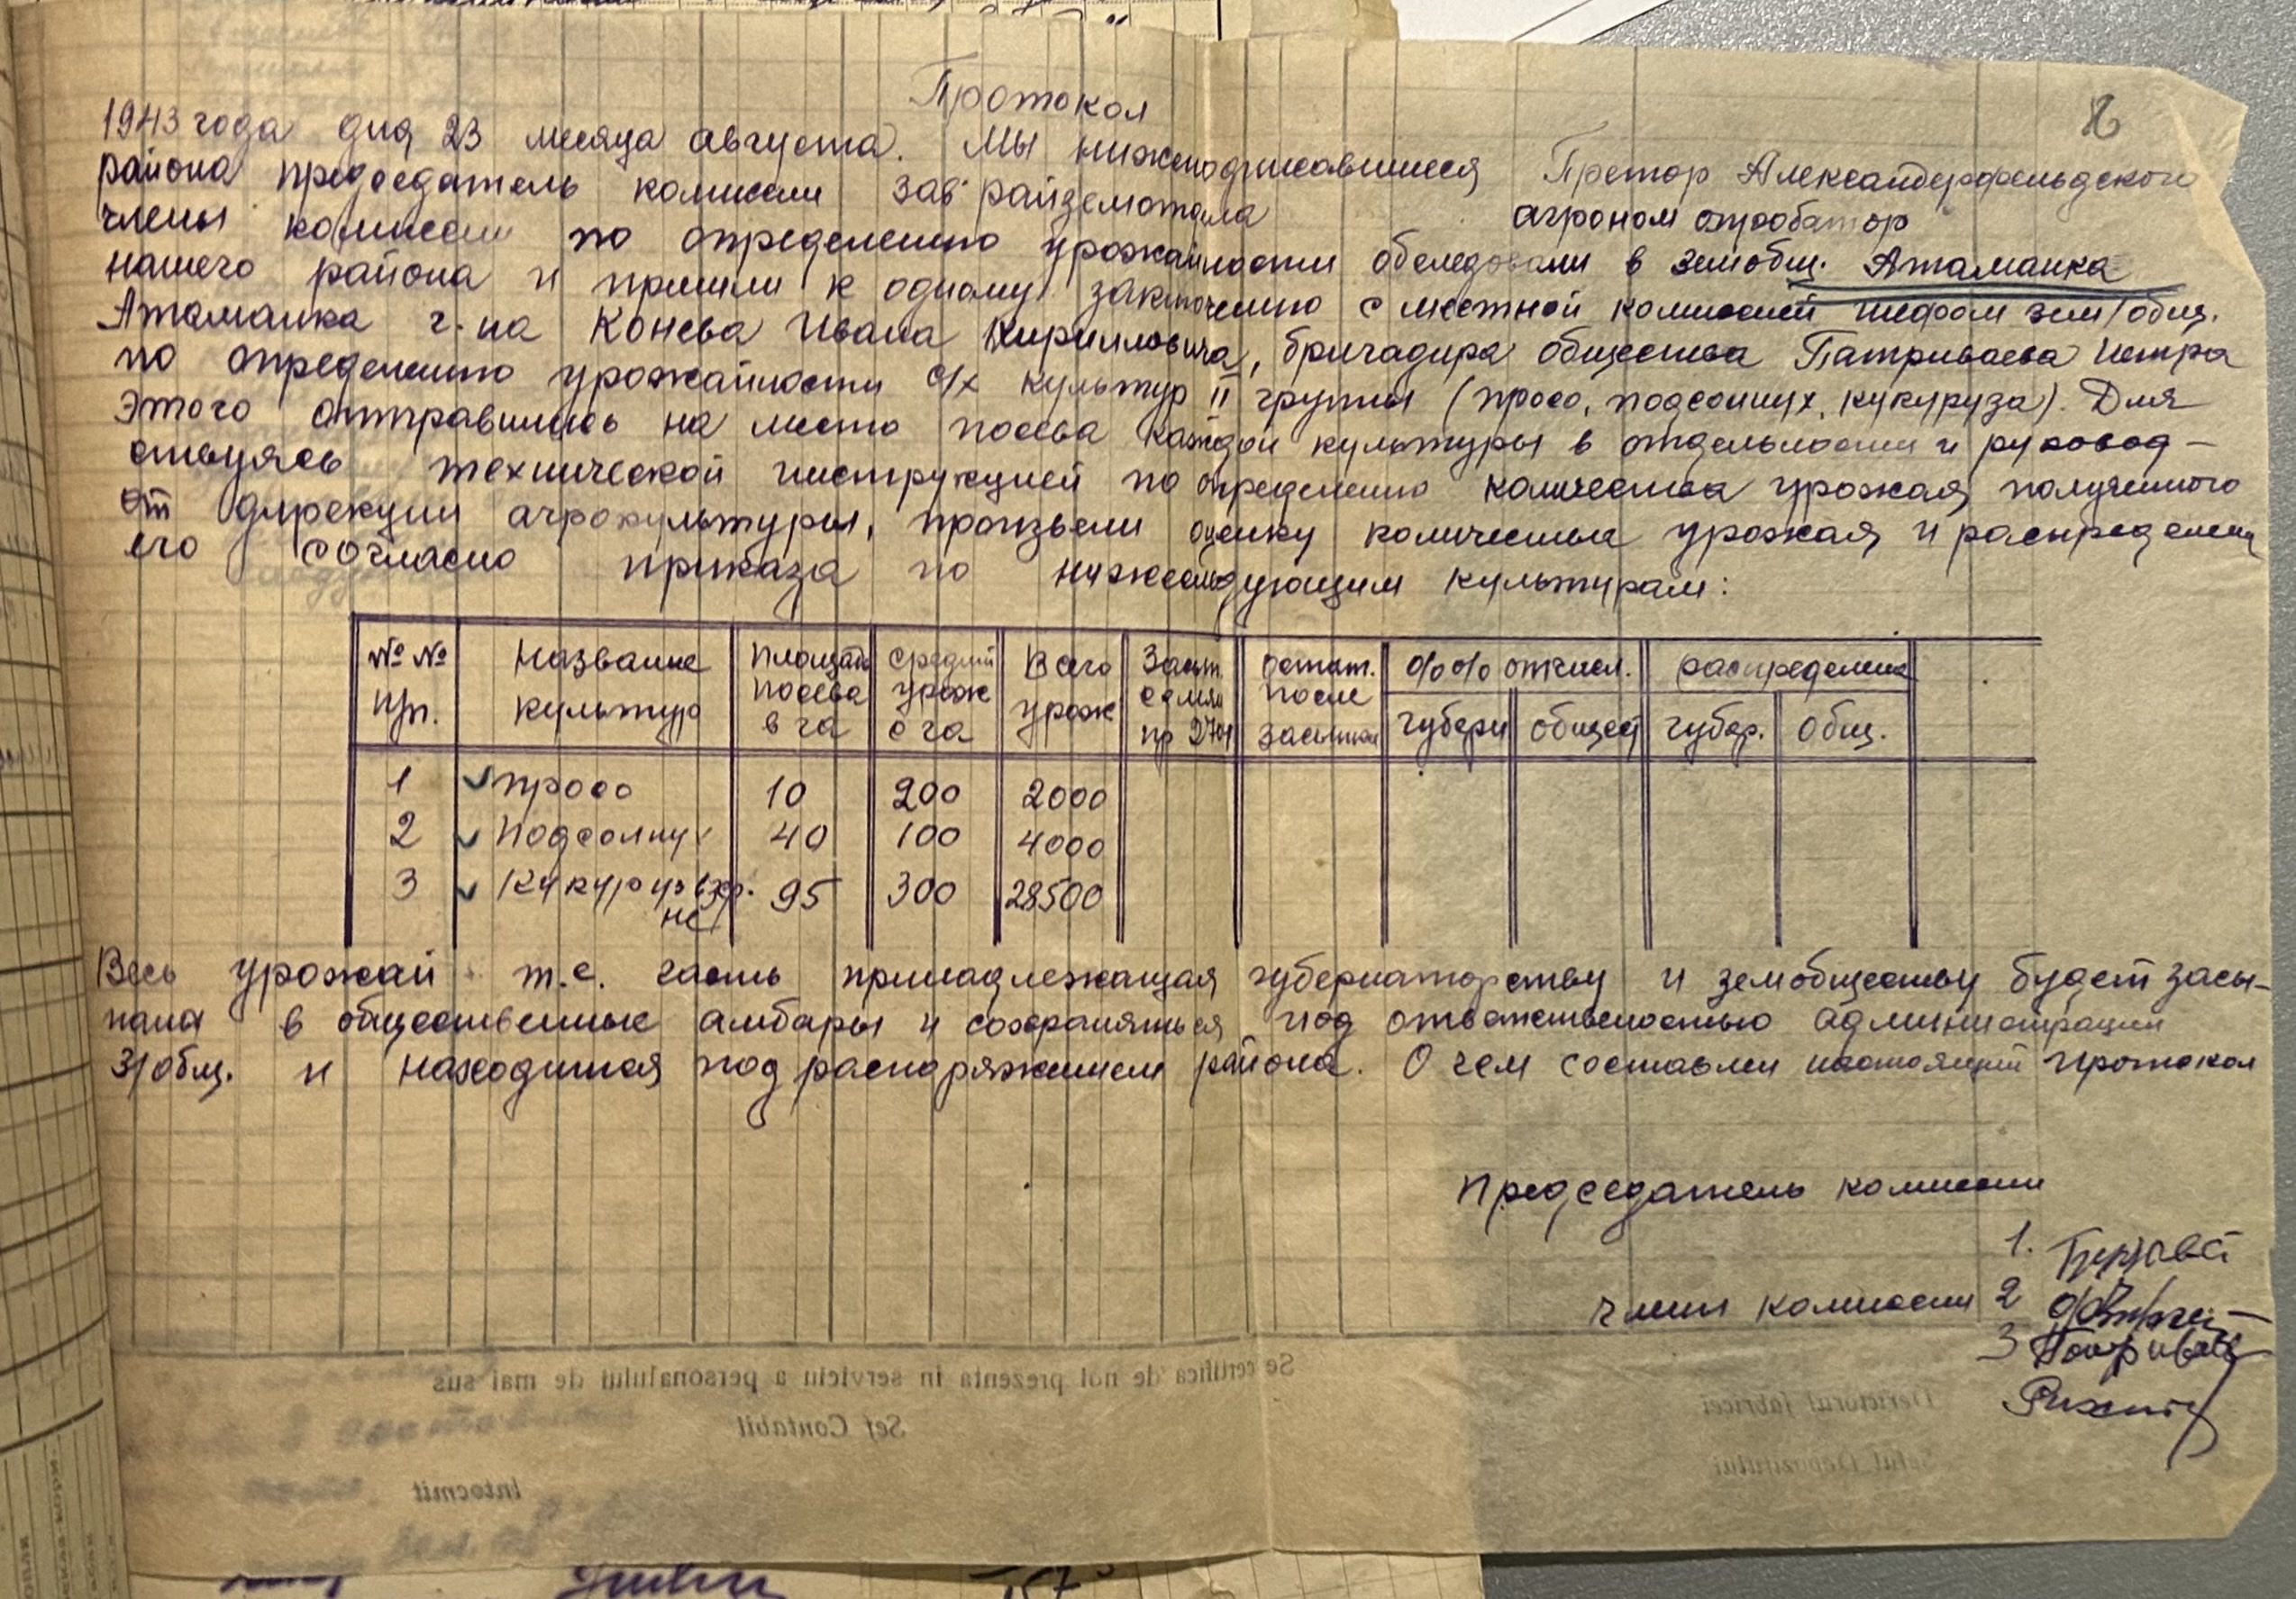 Протокол
1943 года дня 23 месяца августа. Мы нижеподписавшиеся Претор Александерфельдского
района председатель комиссии зав райземотдела агроном апробатор
члены комиссии по определению урожайности обследовали в земобщ. Атаманка
нашего района и пришли к одному заключению с местной комиссией шефом зем/общ.
Атаманка г-на Конева Ивана Кирилловича, бригадира общества Патриваева Петра
по определению урожайности с/х культур II группы (просо, подсолнух, кукуруза). Для
этого отправились на место посева каждой культуры в отдельности и руковод-
ствуясь технической инструкцией по определению количества урожая, полученного
от дирекции агрокультуры, произвели оценку количества урожая и распределения
его согласно приказа по нижеследующим культурам:
№ № п/п. Название культур Площадь посева в га Средний урож с га Всего урож Засып. семян пр 2701 Остат. после засыпки %% отчисл. распределение
губерн общест губер. общ.
1 просо 10 200 2000
2 Подсолнух 40 100 4000
3 Кукуруз взр. 95 300 28500
Весь урожай т.е. часть принадлежащая губернаторству и земобществу будет засы-
пана в общественные амбары и сохраняться под ответственностью администрации
з/общ. и находится под распоряжением района. О чем составлен настоящий протокол
Председатель комиссии
1.
члены комиссии 2
3
Se certifica de noi prezenta in serviciu a personalului de mai sus
Sef Contabil
Derictorul fabricei
Intocmit